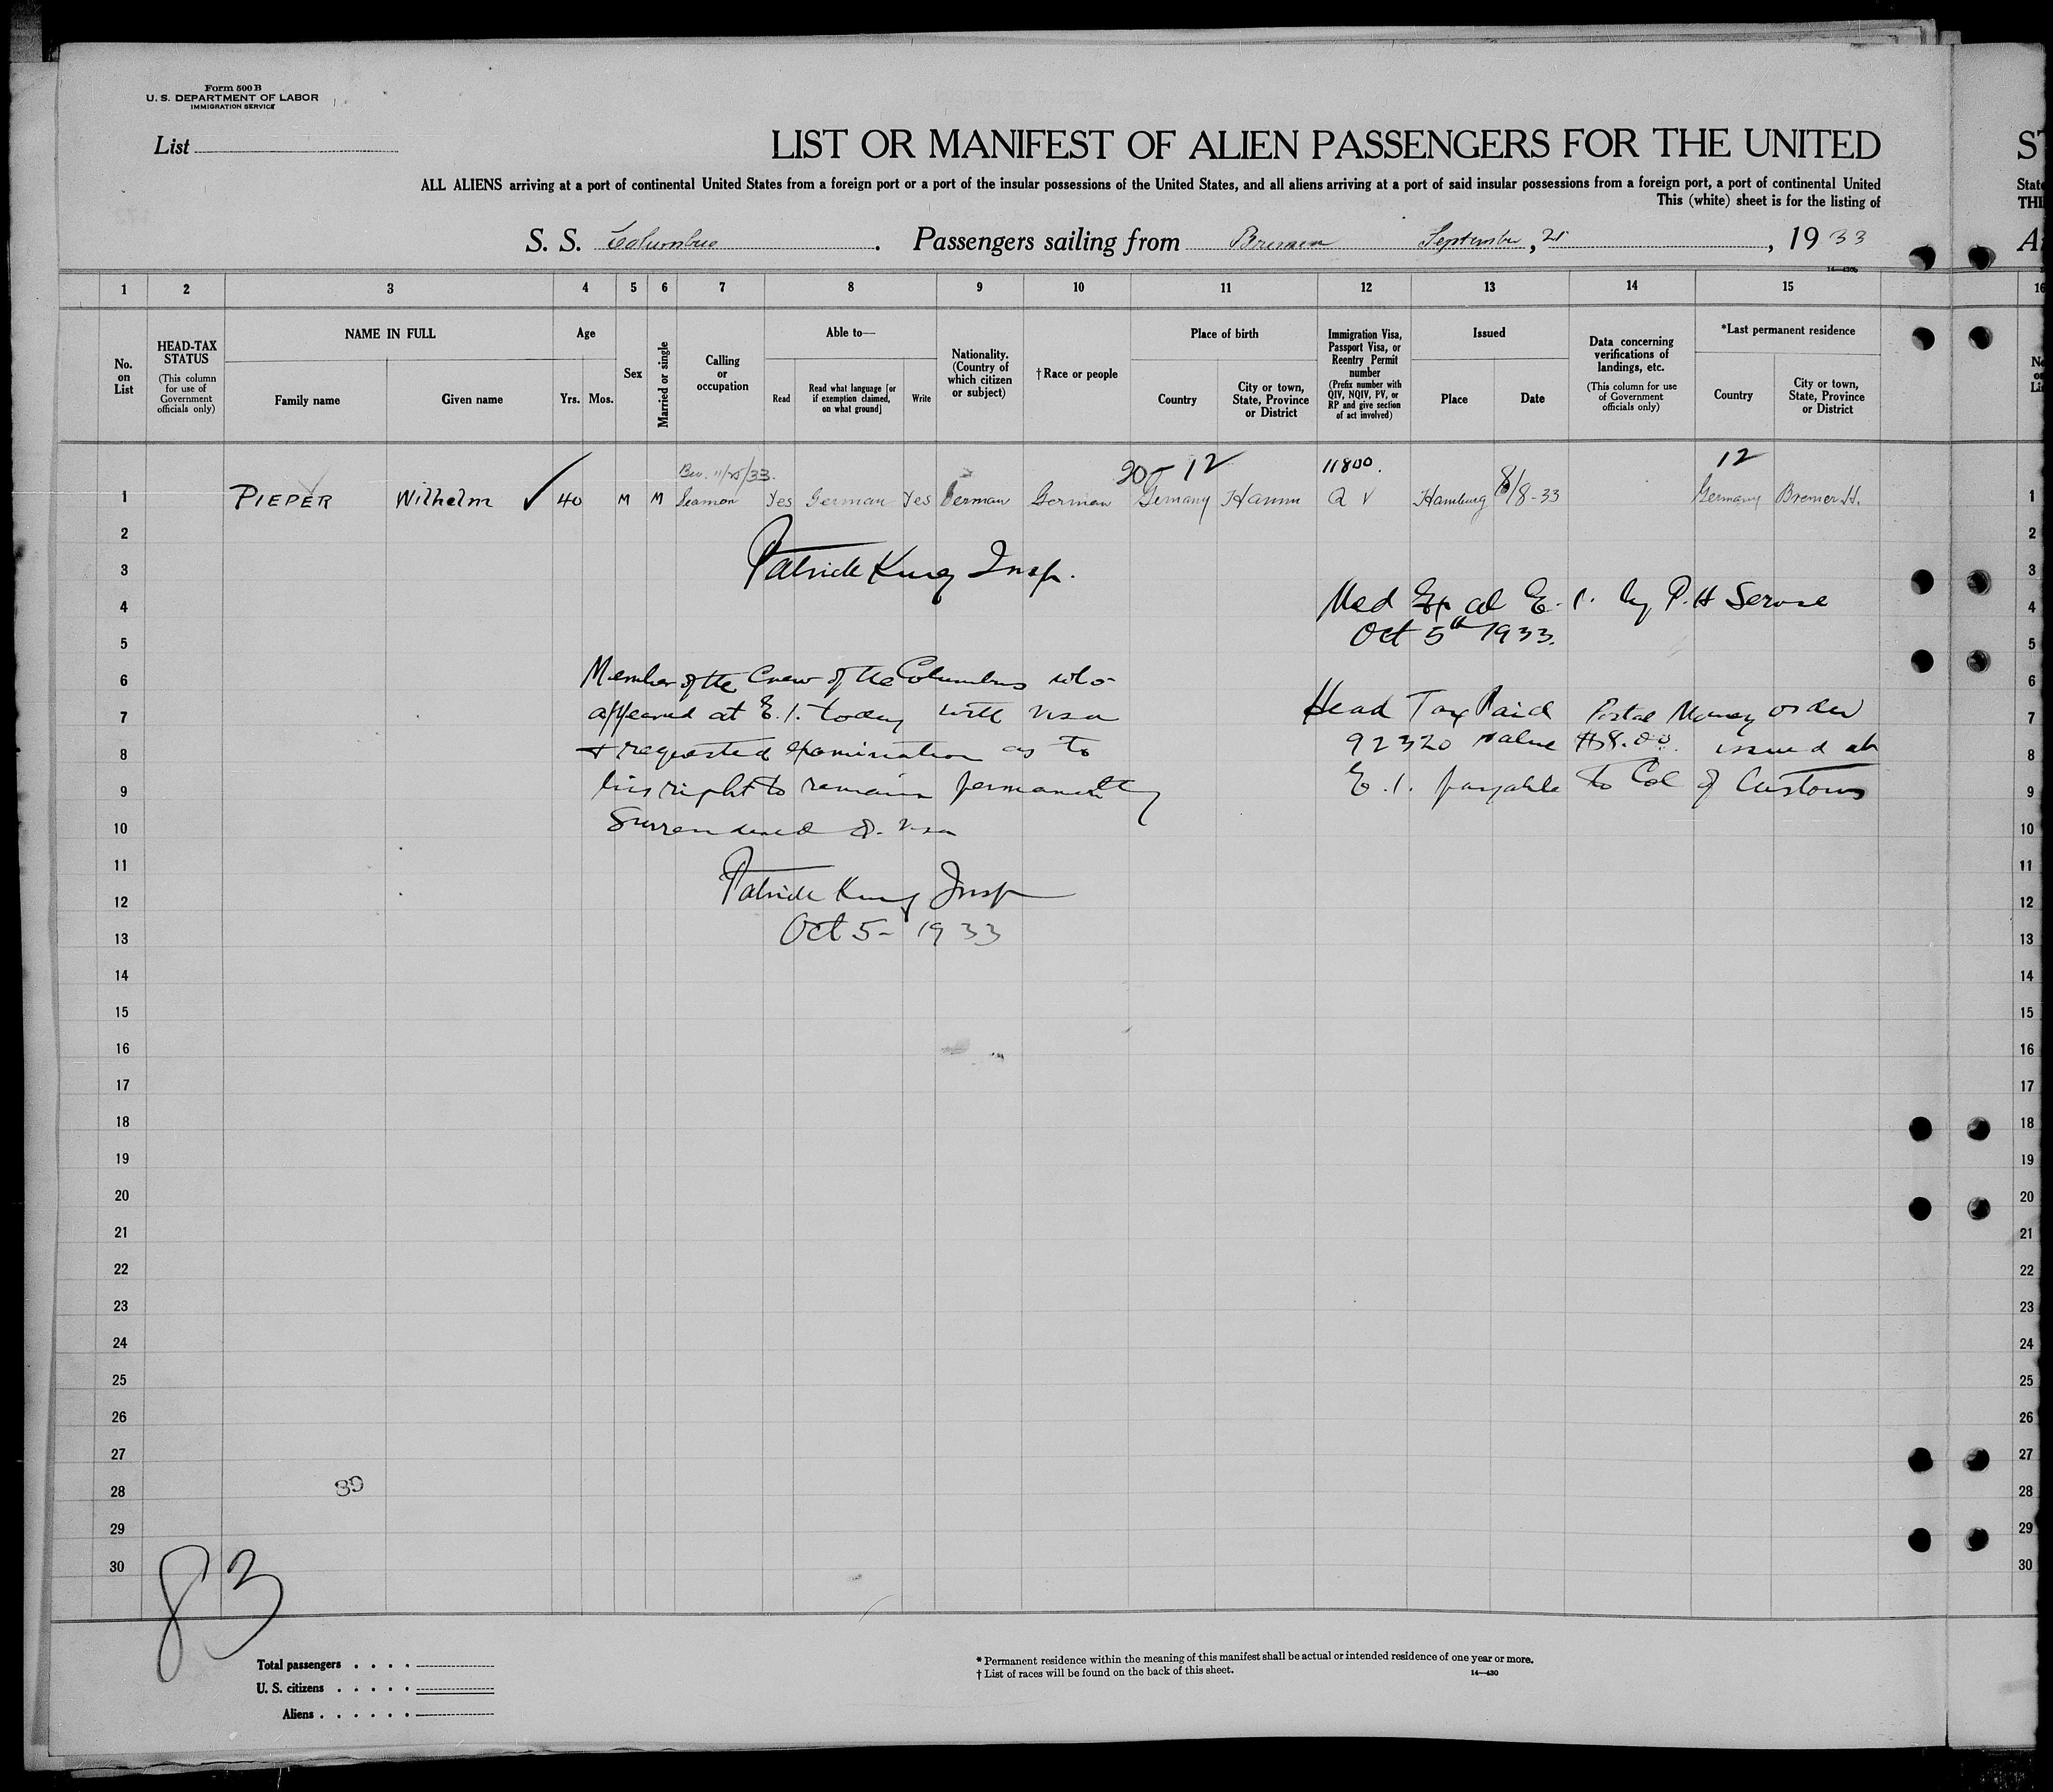 Form 500 B
U. S. DEPARTMENT OF LABOR
IMMIGRATION SERVICE
List
LIST OR MANIFEST OF ALIEN PASSENGERS FOR THE UNITED
ST
ALL ALIENS arriving at a port of continental United States from a foreign port or a port of the insular possessions of the United States, and all aliens arriving at a port of said insular possessions from a foreign port, a port of continental United
State
This (white) sheet is for the listing of
THI
S. S. Columbus. Passengers sailing from Bremen September, 21, 1933
14—430b
1 2 3 4 5 6 7 8 9 10 11 12 13 14 15 16
No. on List
HEAD-TAX STATUS
(This column for use of Government officials only)
NAME IN FULL
Family name
Given name
Age
Yrs. Mos.
Sex
Married or single
Calling or occupation
Able to—
Read
Read what language [or if exemption claimed, on what ground]
Write
Nationality. (Country of which citizen or subject)
†Race or people
Place of birth
Country
City or town, State, Province or District
Immigration Visa, Passport Visa, or Reentry Permit number
(Prefix number with QIV, NQIV, PV, or RP and give section of act involved)
Issued
Place
Date
Data concerning verifications of landings, etc.
(This column for use of Government officials only)
*Last permanent residence
Country
City or town, State, Province or District
11/25/33. 12 11800. 12
1 PIEPER Wilhelm ✓ 40 M M Seaman Yes German Yes German German Germany Hamm Q V Hamburg 8/8-33 Germany Bremer H. 1
2 2
3 Patrick King Insp. 3
4 Med Ex at E. I. by P. H Service 4
5 Oct 5th 1933. 5
6 Member of the Crew of the Columbus who 6
7 appeared at E. I. today with visa Head Tax Paid Postal Money order 7
8 + requested examination as to 92320 value $8.00. issued at 8
9 his right to remain permanently E. I. payable to Col of Customs 9
10 Surrendered visa 10
11 11
12 Patrick King Insp 12
13 Oct 5- 1933 13
14 14
15 15
16 16
17 17
18 18
19 19
20 20
21 21
22 22
23 23
24 24
25 25
26 26
27 27
28 28
29 29
30 30
83
Total passengers . . . .
U. S. citizens . . . . .
Aliens . . . . . .
* Permanent residence within the meaning of this manifest shall be actual or intended residence of one year or more.
† List of races will be found on the back of this sheet.
14—430